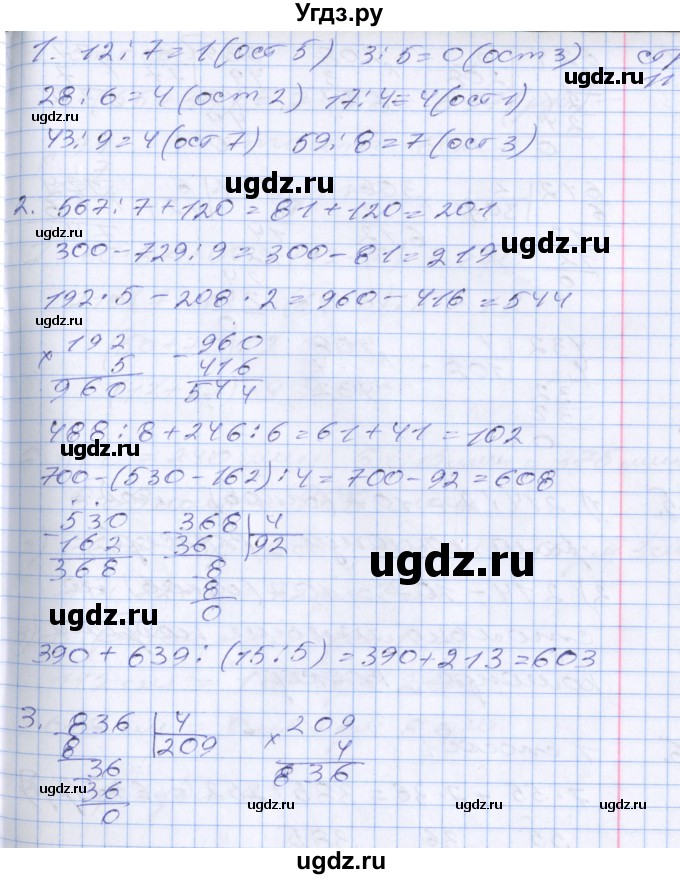 Угдз.ру
1. 12:7=1(ост 5) 3:5=0(ост 3) стр
11
28:6=4(ост 2) 17:4=4(ост 1)
ugdz.ru
ugdz.ru
43:9=4(ост 7) 59:8=7(ост 3)
ugdz.ru
2. 567:7+120=81+120=201
ugdz.ru
ugdz.ru
300-729:9=300-81=219
192·5-208·2=960-416=544
ugdz.ru
× 192 - 960
5 416
960 544
ugdz.ru
488:8+246:6=61+41=102
700-(530-162):4=700-92=608
ugdz.ru
- 530 - 368 | 4
162 36 92
368 - 8
8
0
ugdz.ru
ugdz.ru
ugdz.ru
390+639:(15:5)=390+213=603
3. - 836 | 4 × 209
8 209 4
- 36 836
36
0
ugdz.ru
ugdz.ru
ugdz.ru
ugdz.ru
ugdz.ru